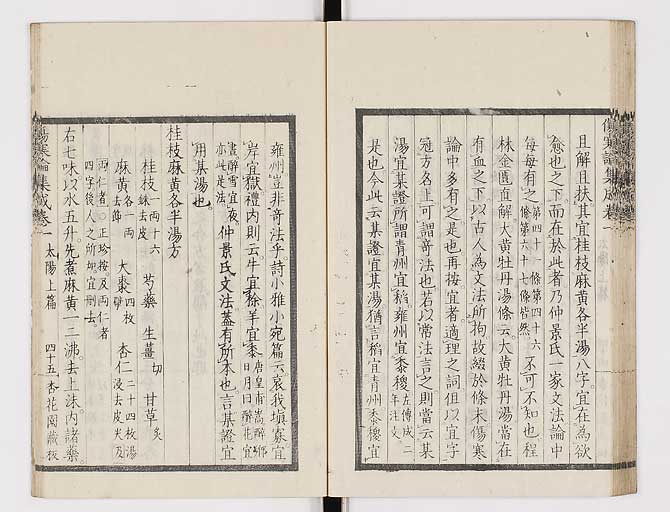 且解且扶其宜桂枝麻黃各半湯八字宜在為欲
愈也之下而在於此者乃仲景氏一家文法論中
每每有之第四十一條第四十六條第六十七條皆然不可不知也程
林金匱直解大黃牡丹湯條云大黃牡丹湯當在
有血之下以古人為文法所拘故綴於條末傷寒
論中多有之是也再按宜者適理之詞但以宜字
冠方名上可謂竒法也若以常法言之則當云某
湯宜某證所謂青州宜稻雍州宜黍稷左傳成二年注文
是也今此云某證宜某湯猶言稻宜青州黍稷宜
雍州豈非竒法乎詩小雅小宛篇云哀我填寡宜
岸宜獄禮內則云牛宜稌羊宜黍唐皇甫嵩醉鄉日月曰醉花宜
晝醉雪宜夜亦此是法仲景氏文法蓋有所本也言某證宜
用某湯也
桂枝麻黃各半湯方
桂枝一兩十六銖去皮 芍藥 生薑切 甘草炙
麻黃各一兩去節 大棗四枚擘 杏仁二十四枚湯浸去皮尖及
兩仁者○正珍按及兩仁者
四字後人之所加宜刪去
右七味以水五升先煮麻黃一二沸去上沫內諸藥
傷寒論集成卷一 太陽上篇 四十五 杏花園藏板